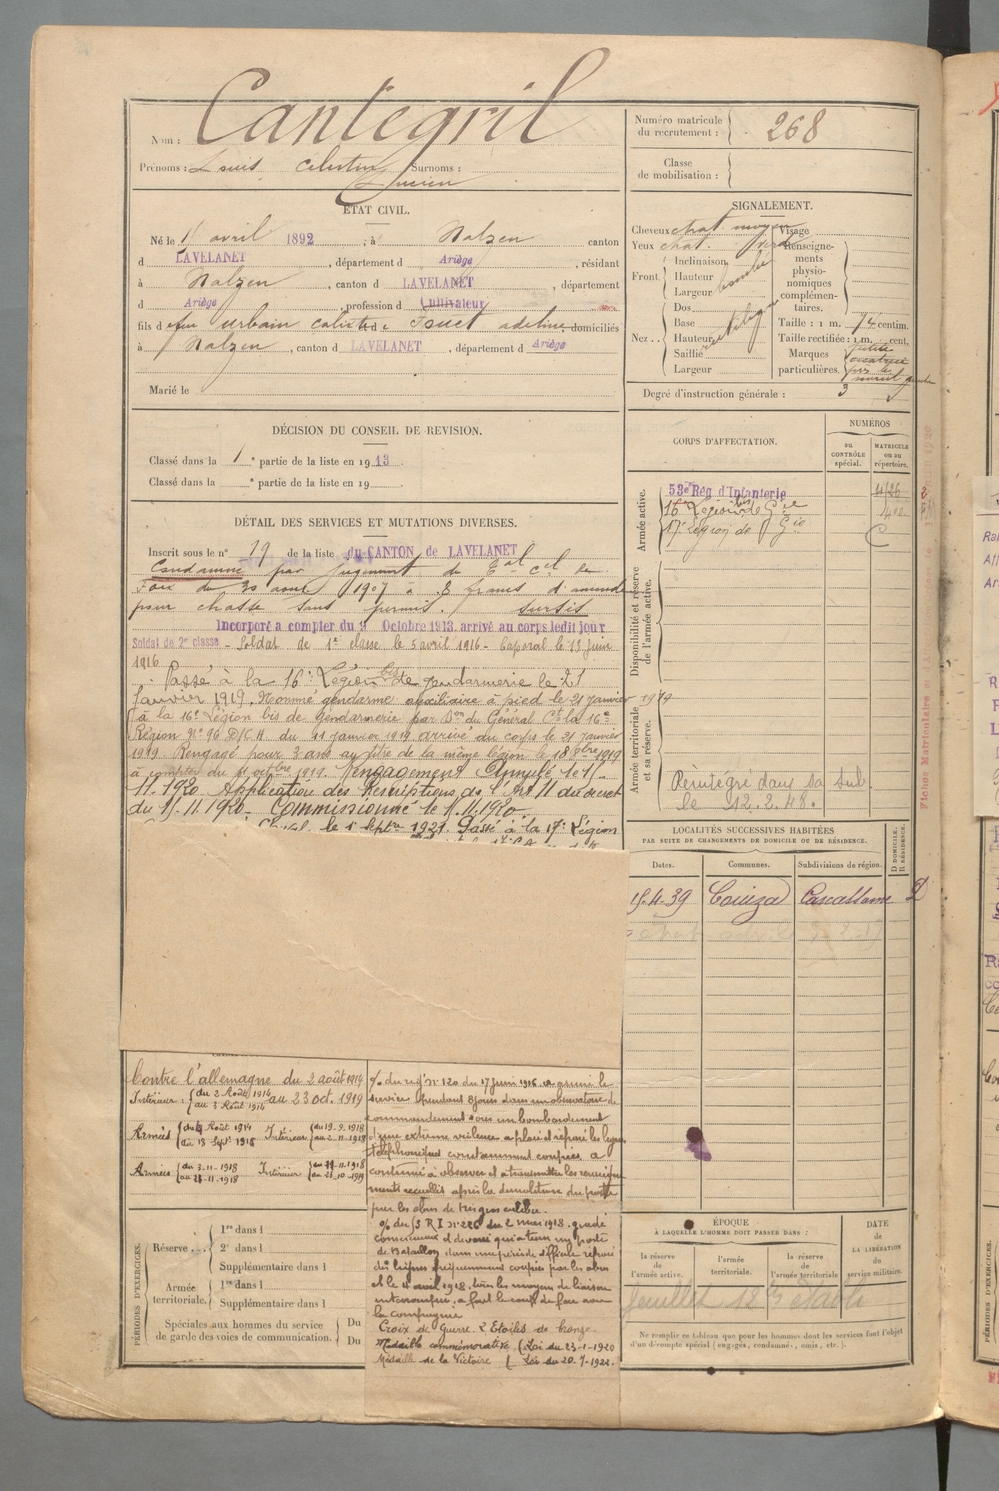 Nom : Cantegril
Prénoms : Louis Célestin Surnoms :
Lucien
ÉTAT CIVIL.
Né le avril 1892, à Nalzen canton
d LAVELANET, département d Ariège, résidant
à Nalzen, canton d LAVELANET, département
d Ariège, profession d Cultivateur
fils d feu Urbain et d adeline domiciliés
à Nalzen, canton d LAVELANET, département d Ariège
Marié le
DÉCISION DU CONSEIL DE REVISION.
Classé dans la 1e partie de la liste en 1913.
Classé dans la e partie de la liste en 19
DÉTAIL DES SERVICES ET MUTATIONS DIVERSES.
Inscrit sous le n° 19 de la liste du CANTON de LAVELANET
Condamné par jugement de
Foix du 30 aout 1907 à 8 francs d'amende
pour chasse sans permis. Sursis
Incorporé à compter du 9 Octobre 1913. arrivé au corps ledit jour
Soldat de 2e classe - Soldat de 1e classe le 5 avril 1916 - Caporal le 13 juin
1916
Passé à la 16e Légion bis de gendarmerie le 21
Janvier 1919. Nommé gendarme auxiliaire à pied le 21 janvier 1919
à la 16e Légion bis de Gendarmerie par Don du Général Ct la 16e
Région N° 96 du 21 janvier 1919 arrivé au corps le 21 janvier
1919. Rengagé pour 3 ans au titre de la même légion le 18 8bre 1919
à compter du octobre 1919. Rengagement Annulé le 1-
11.1920. Application des Prescriptions de l'Art 11 du décret
du 1.11.1920. Commissionné le 1.11.1920.
le 1 Septbre 1927. Passé à la 17e Légion
Contre l'allemagne du 2 août 1914
au 23 oct. 1919
Intérieur : du 2 Août 1914
au 3 Août 1914
Armées du 4 Août 1914
au 18 Sept 1918
Intérieur du 19-9-1918
au 2-11-1918
Armées du 3-11-1918
au 28-11-1918
Intérieur
au 23-10-1919
PÉRIODES D'EXERCICES.
Réserve...
1re dans l
2e dans l
Supplémentaire dans l
Armée
territoriale.
1re dans l
Supplémentaire dans l
Spéciales aux hommes du service
de garde des voies de communication.
Du
Du
% du régt n° 120 du 17 juin 1916 a assuré le
service pendant 8 jours dans un observatoire de
commandement sous un bombardement
d'une extrême violence a placé et réparé les lignes
téléphoniques constamment coupées, a
continué à observer et à transmettre les renseigne
ments recueillis après la démolition du poste
par les obus de très gros calibre.
% du 53 RI n° 226 du 2 mai 1918. gradé
consciencieux et dévoué qui a tenu un poste
de Bataillon dans une période difficile réparé
des lignes fréquemment coupées par les obus
et le 4 avril 1918, tous les moyens de liaison
interrompus, a fait le coup de feu avec
la compagnie
Croix de Guerre. 2 Etoiles de bronze.
Médaille commémorative (Loi du 23-1-1920
Médaille de la Victoire ( Loi du 20-7-1922.
Numéro matricule
du recrutement : 268
Classe
de mobilisation :
SIGNALEMENT.
Cheveux chat. moyen
Yeux chat. verd
Front
Inclinaison
Hauteur
Largeur
Nez..
Dos
Base
Hauteur
Saillie
Largeur
rectiligne
Visage
Renseigne-
ments
physio-
nomiques
complémen-
taires.
Taille : 1 m. 74 centim.
Taille rectifiée : 1 m. cent.
Marques
particulières. petite
cicatrice
Degré d'instruction générale : 3
CORPS D'AFFECTATION.
NUMÉROS
au
CONTRÔLE
spécial.
MATRICULE
ou au
répertoire.
Armée active.
53e Rég d'Infanterie 4126
16e Légion bis de Gie
17e Légion de Gie
Disponibilité et réserve
de l'armée active.
Armée territoriale
et sa réserve.
Réintégré dans sa sub.
le 12.2.48.
LOCALITÉS SUCCESSIVES HABITÉES
PAR SUITE DE CHANGEMENTS DE DOMICILE OU DE RÉSIDENCE.
Dates. Communes. Subdivisions de région.
D DOMICILE.
R RÉSIDENCE.
15-4-39 Couiza Carcassonne D
ÉPOQUE
À LAQUELLE L'HOMME DOIT PASSER DANS :
la réserve
de l'armée active.
l'armée
territoriale.
la réserve
de l'armée territoriale
DATE
de
LA LIBÉRATION
du
service militaire.
feuillet 12 bis établi
Ne remplir ce tableau que pour les hommes dont les services font l'objet
d'un décompte spécial (engagés, condamnés, omis, etc.).